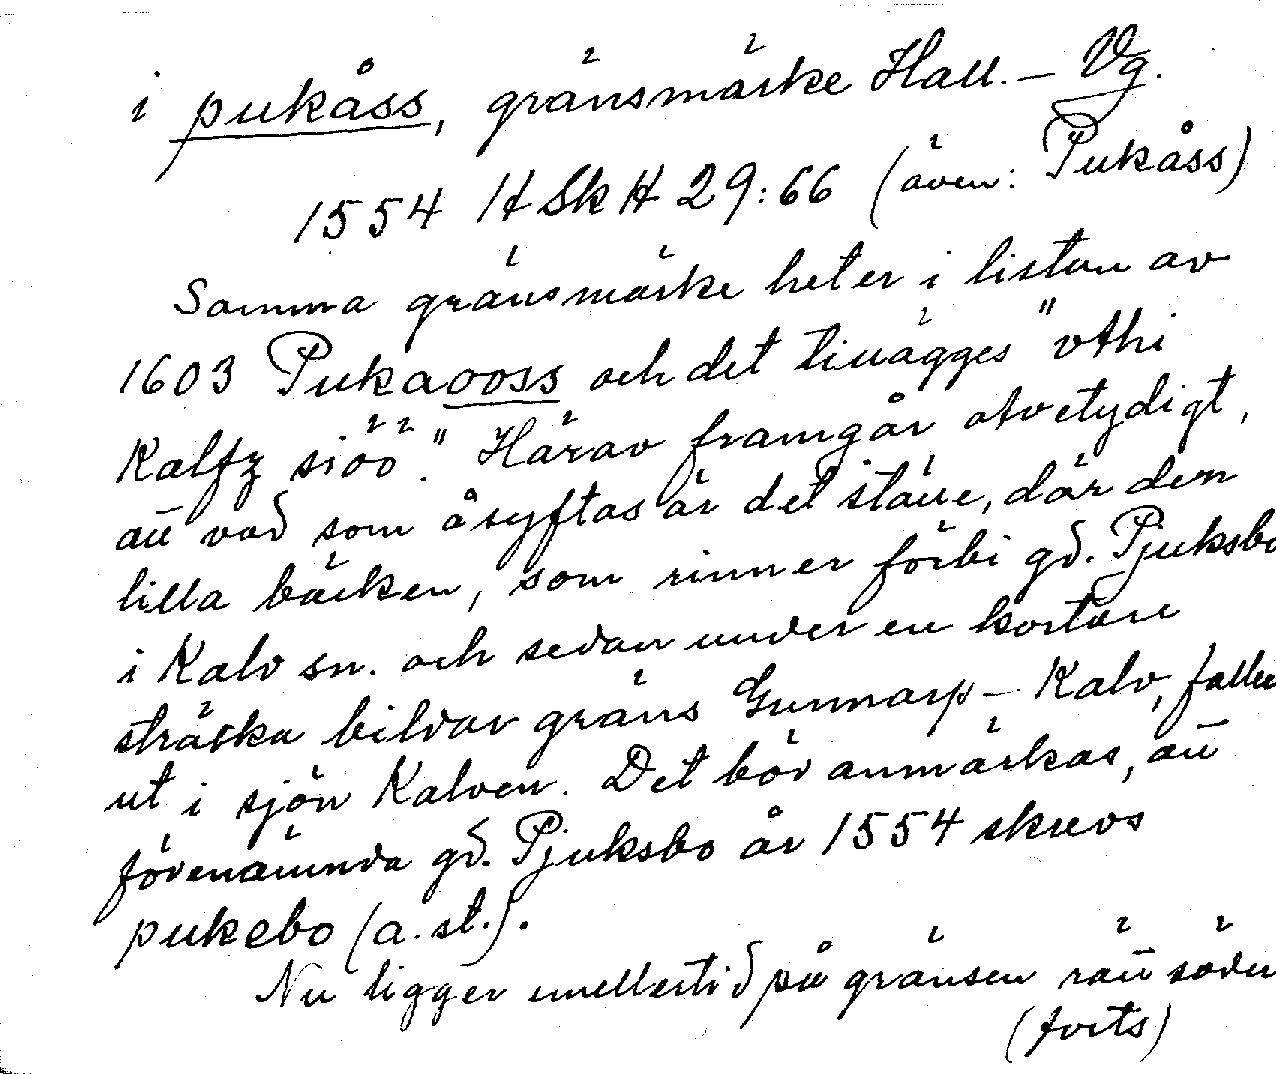 i pukåss, gränsmärke Hall. – Vg.
1554 HSkH 29:66 (även: Pukåss)
Samma gränsmärke heter i listan av
1603 Pukaooss och det tillägges "vthi
Kalfz siöö". Härav framgår otvetydigt,
att vad som åsyftas är det ställe, där den
lilla bäcken, som rinner förbi gd. Pjuksbo
i Kalv sn. och sedan under en kortare
sträcka bildar gräns Gunnarp – Kalv, faller
ut i sjön Kalven. Det bör anmärkas, att
förenämnda gd. Pjuksbo år 1554 skrevs
pukebo (a. st.).
Nu ligger emellertid på gränsen rätt söder
(forts)